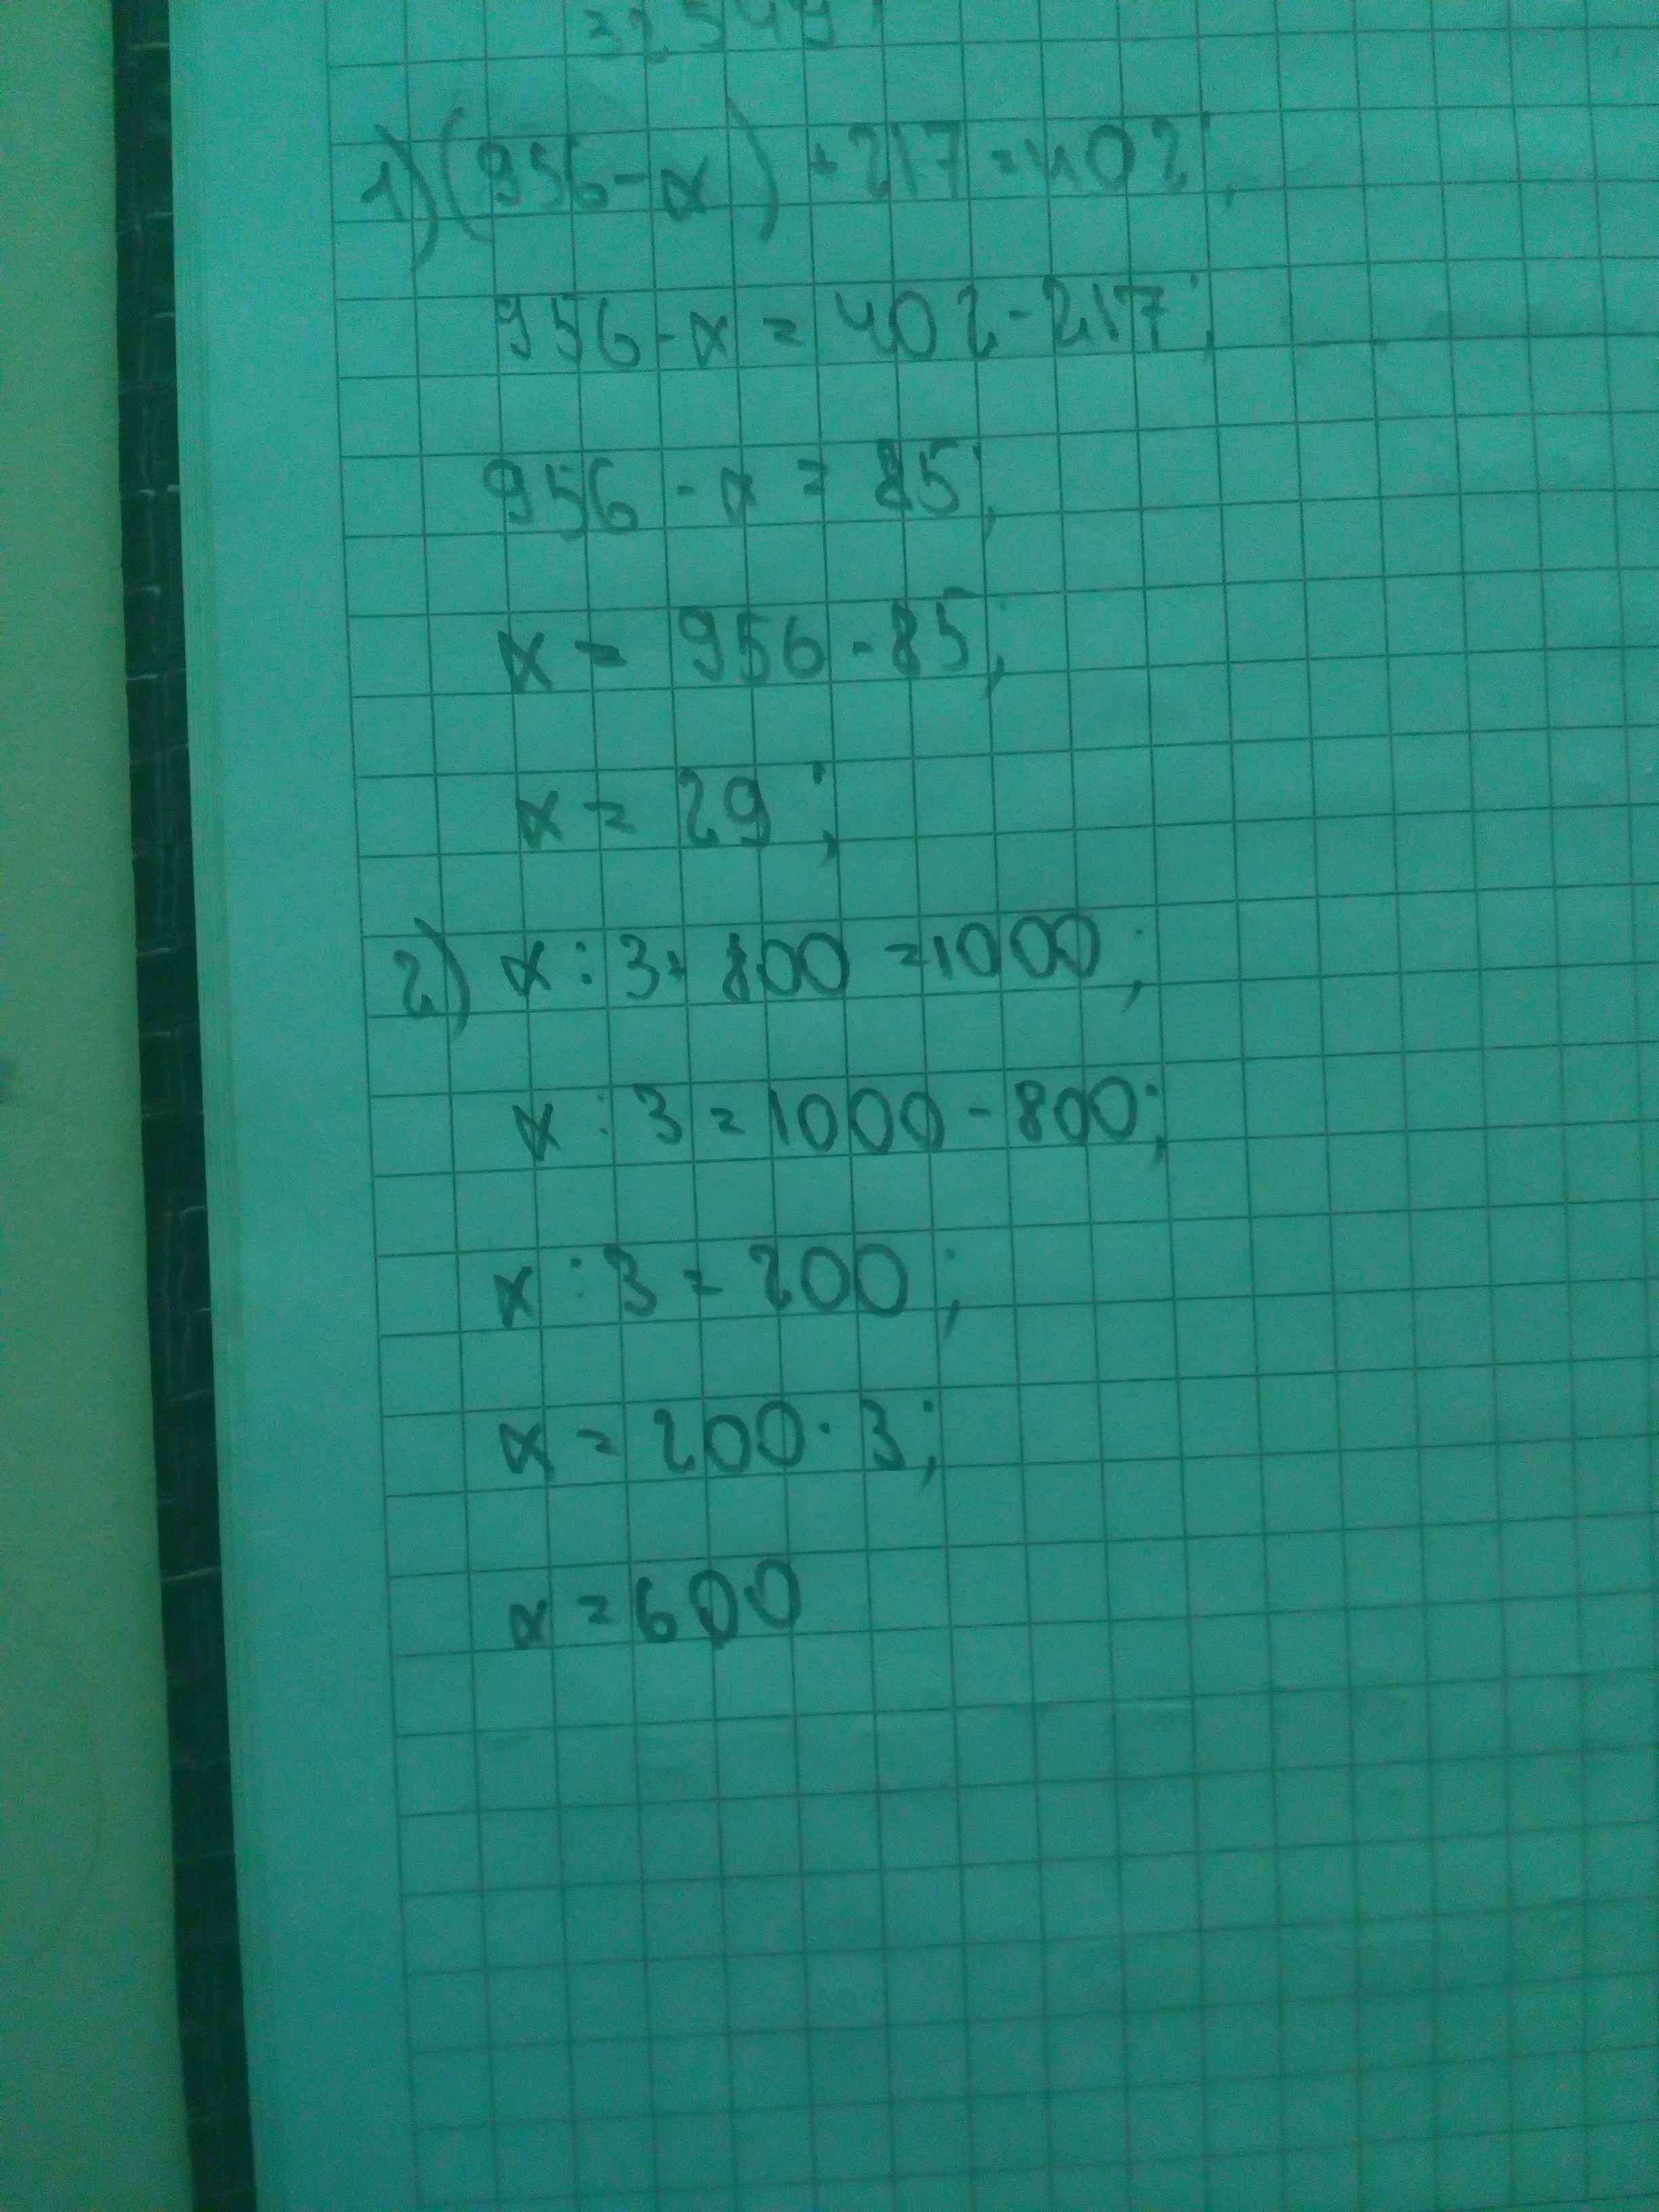 32549
1) (956-x) + 217 = 402;
956 - x = 402 - 217;
956 - x = 85;
x = 956 - 85;
x = 29;
2) x : 3 + 800 = 1000;
x : 3 = 1000 - 800;
x : 3 = 200;
x = 200 · 3;
x = 600